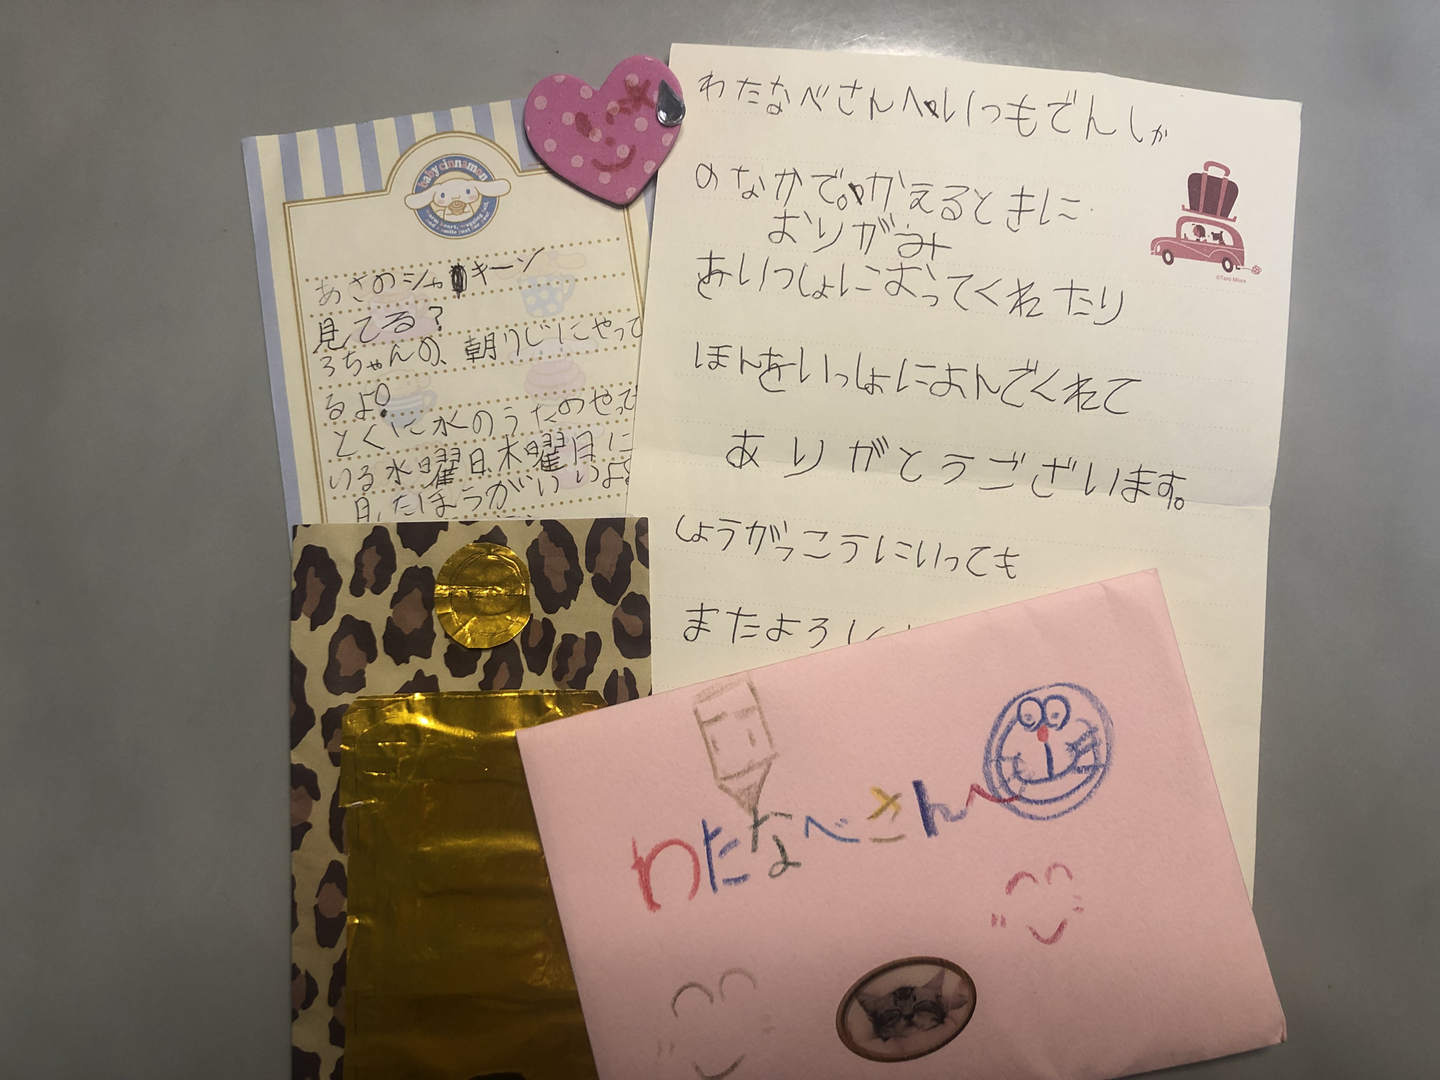 baby cinnamon
あさのシャキーン
見てる?
3ちゃんの、朝7じにやって
るよ。
とくに水のうたのやって
いる水曜日、木曜日に
見たほうがいいよ
わたなべさんへいつもでんしゃ
のなかで。かえるときに
おりがみ
をいっしょにおってくれたり
ほんをいっしょによんでくれて
ありがとうございます。
しょうがっこうにいっても
またよろし
わたなべさんへ